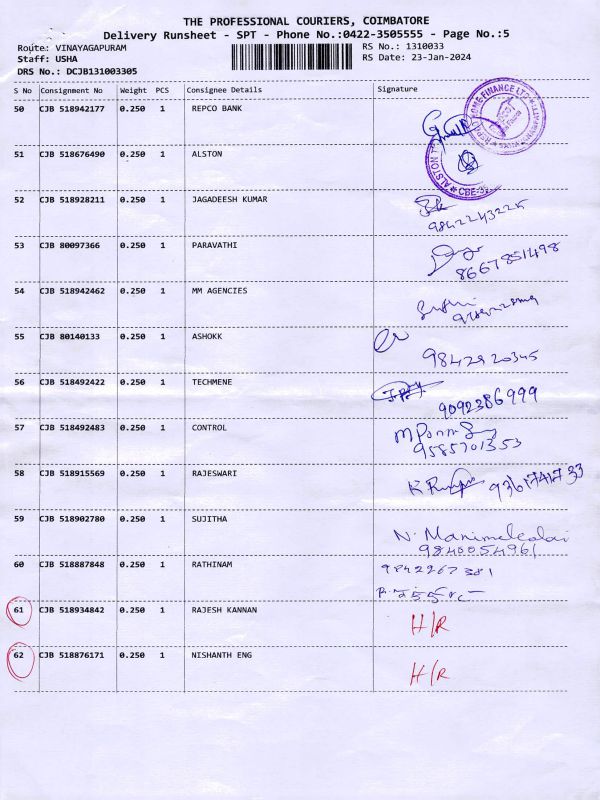 THE PROFESSIONAL COURIERS, COIMBATORE
Delivery Runsheet - SPT - Phone No.:0422-3505555 - Page No.:5
Route: VINAYAGAPURAM RS No.: 1310033
Staff: USHA RS Date: 23-Jan-2024
DRS No.: DCJB131003305
S No Consignment No Weight PCS Consignee Details Signature
50 CJB 518942177 0.250 1 REPCO BANK
51 CJB 518676490 0.250 1 ALSTON
ALSTON CBE-35
52 CJB 518928211 0.250 1 JAGADEESH KUMAR
9842243225
53 CJB 80097366 0.250 1 PARAVATHI
8667851498
54 CJB 518942462 0.250 1 MM AGENCIES
55 CJB 80140133 0.250 1 ASHOKK
9842920345
56 CJB 518492422 0.250 1 TECHMENE
9092386999
57 CJB 518492483 0.250 1 CONTROL
9585701353
58 CJB 518915569 0.250 1 RAJESWARI
59 CJB 518902780 0.250 1 SUJITHA
N. Manimekalai
9840054961
60 CJB 518887848 0.250 1 RATHINAM
9842267381
61 CJB 518934842 0.250 1 RAJESH KANNAN H/R
62 CJB 518876171 0.250 1 NISHANTH ENG H/R